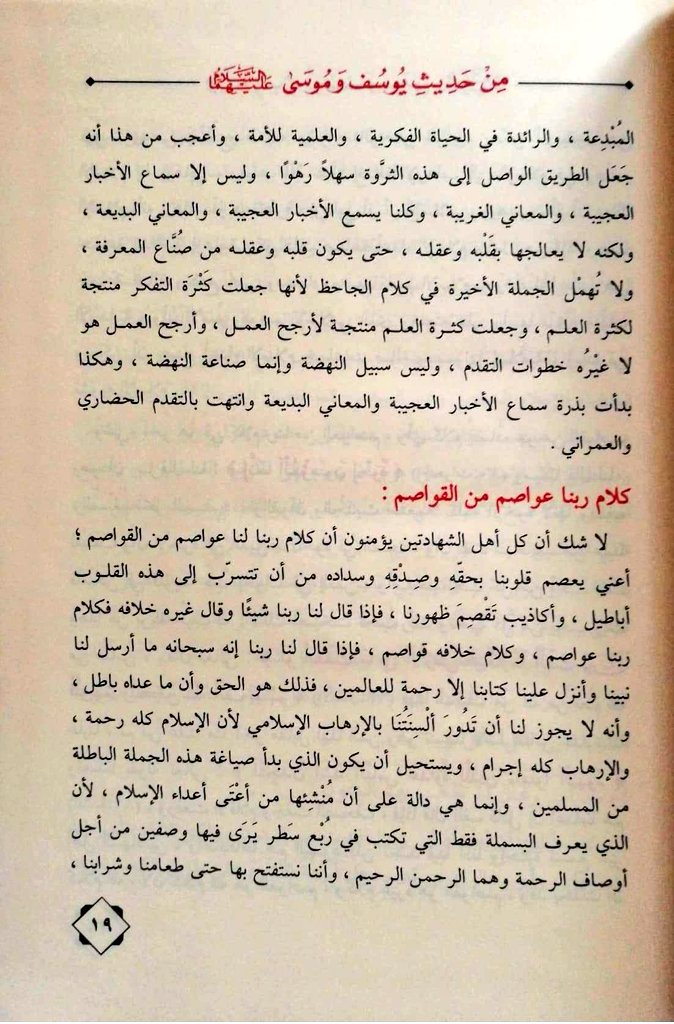 مِنْ حَدِيثِ يُوسُف وَمُوسَىٰ عَلَيْهِمَا السَّلَامُ
المُبْدِعة ، والرائدة في الحياة الفكرية ، والعلمية للأمة ، وأعجب من هذا أنه
جَعَل الطريق الواصل إلى هذه الثرَّوة سهلاً رَهْوًا ، وليس إلا سماع الأخبار
العجيبة ، والمعاني الغريبة ، وكلنا يسمع الأخبار العجيبة ، والمعاني البديعة ،
ولكنه لا يعالجها بقَلْبه وعقلـه ، حتى يكون قلبه وعقلـه من صُنَّاع المعرفة ،
ولا تُهمْل الجملة الأخيرة في كلام الجاحظ لأنها جعلت كَثْرَة التفكر منتجة
لكثرة العلـم ، وجعلت كثـرة العلـم منتجـة لأرجح العمـل ، وأرجح العمـل هو
لا غَيْرُه خطوات التقدم ، وليس سبيل النهضة وإنما صناعة النهضة ، وهكذا
بدأت بذرة سماع الأخبار العجيبة والمعاني البديعة وانتهت بالتقدم الحضاري
والعمراني .
كلام ربنا عواصم من القواصم :
لا شك أن كل أهل الشهادتين يؤمنون أن كلام ربنا لنا عواصم من القواصم ؛
أعني يعصم قلوبنا بحقّهِ وصِـدْقِهِ وسداده من أن تتسرّب إلى هذه القلـوب
أباطيل ، وأكاذيب تَقْصِمَ ظهورنا ، فإذا قال لنا ربنا شيئًا وقال غيره خلافه فكلام
ربنا عواصم ، وكلام خلافه قواصم ، فإذا قال لنا ربنا إنه سبحانه ما أرسل لنا
نبينا وأنزل علينا كتابنا إلا رحمة للعالمين ، فذلك هو الحق وأن ما عداه باطل ،
وأنه لا يجوز لنا أن تَدُورَ ألْسِنَتُنَا بالإرهاب الإسلامي لأن الإسلام كله رحمة ،
والإرهاب كله إجرام ، ويستحيل أن يكون الذي بدأ صياغة هذه الجملة الباطلة
من المسلمين ، وإنما هي دالة على أن مُنْشِئها من أعْتَى أعداء الإسلام ، لأن
الذي يعرف البسملة فقط التي تكتب في رُبْع سَطر يَرَى فيها وصفين من أجل
أوصاف الرحمة وهما الرحمن الرحيم ، وأننا نستفتح بها حتى طعامنا وشرابنا ،
١٩